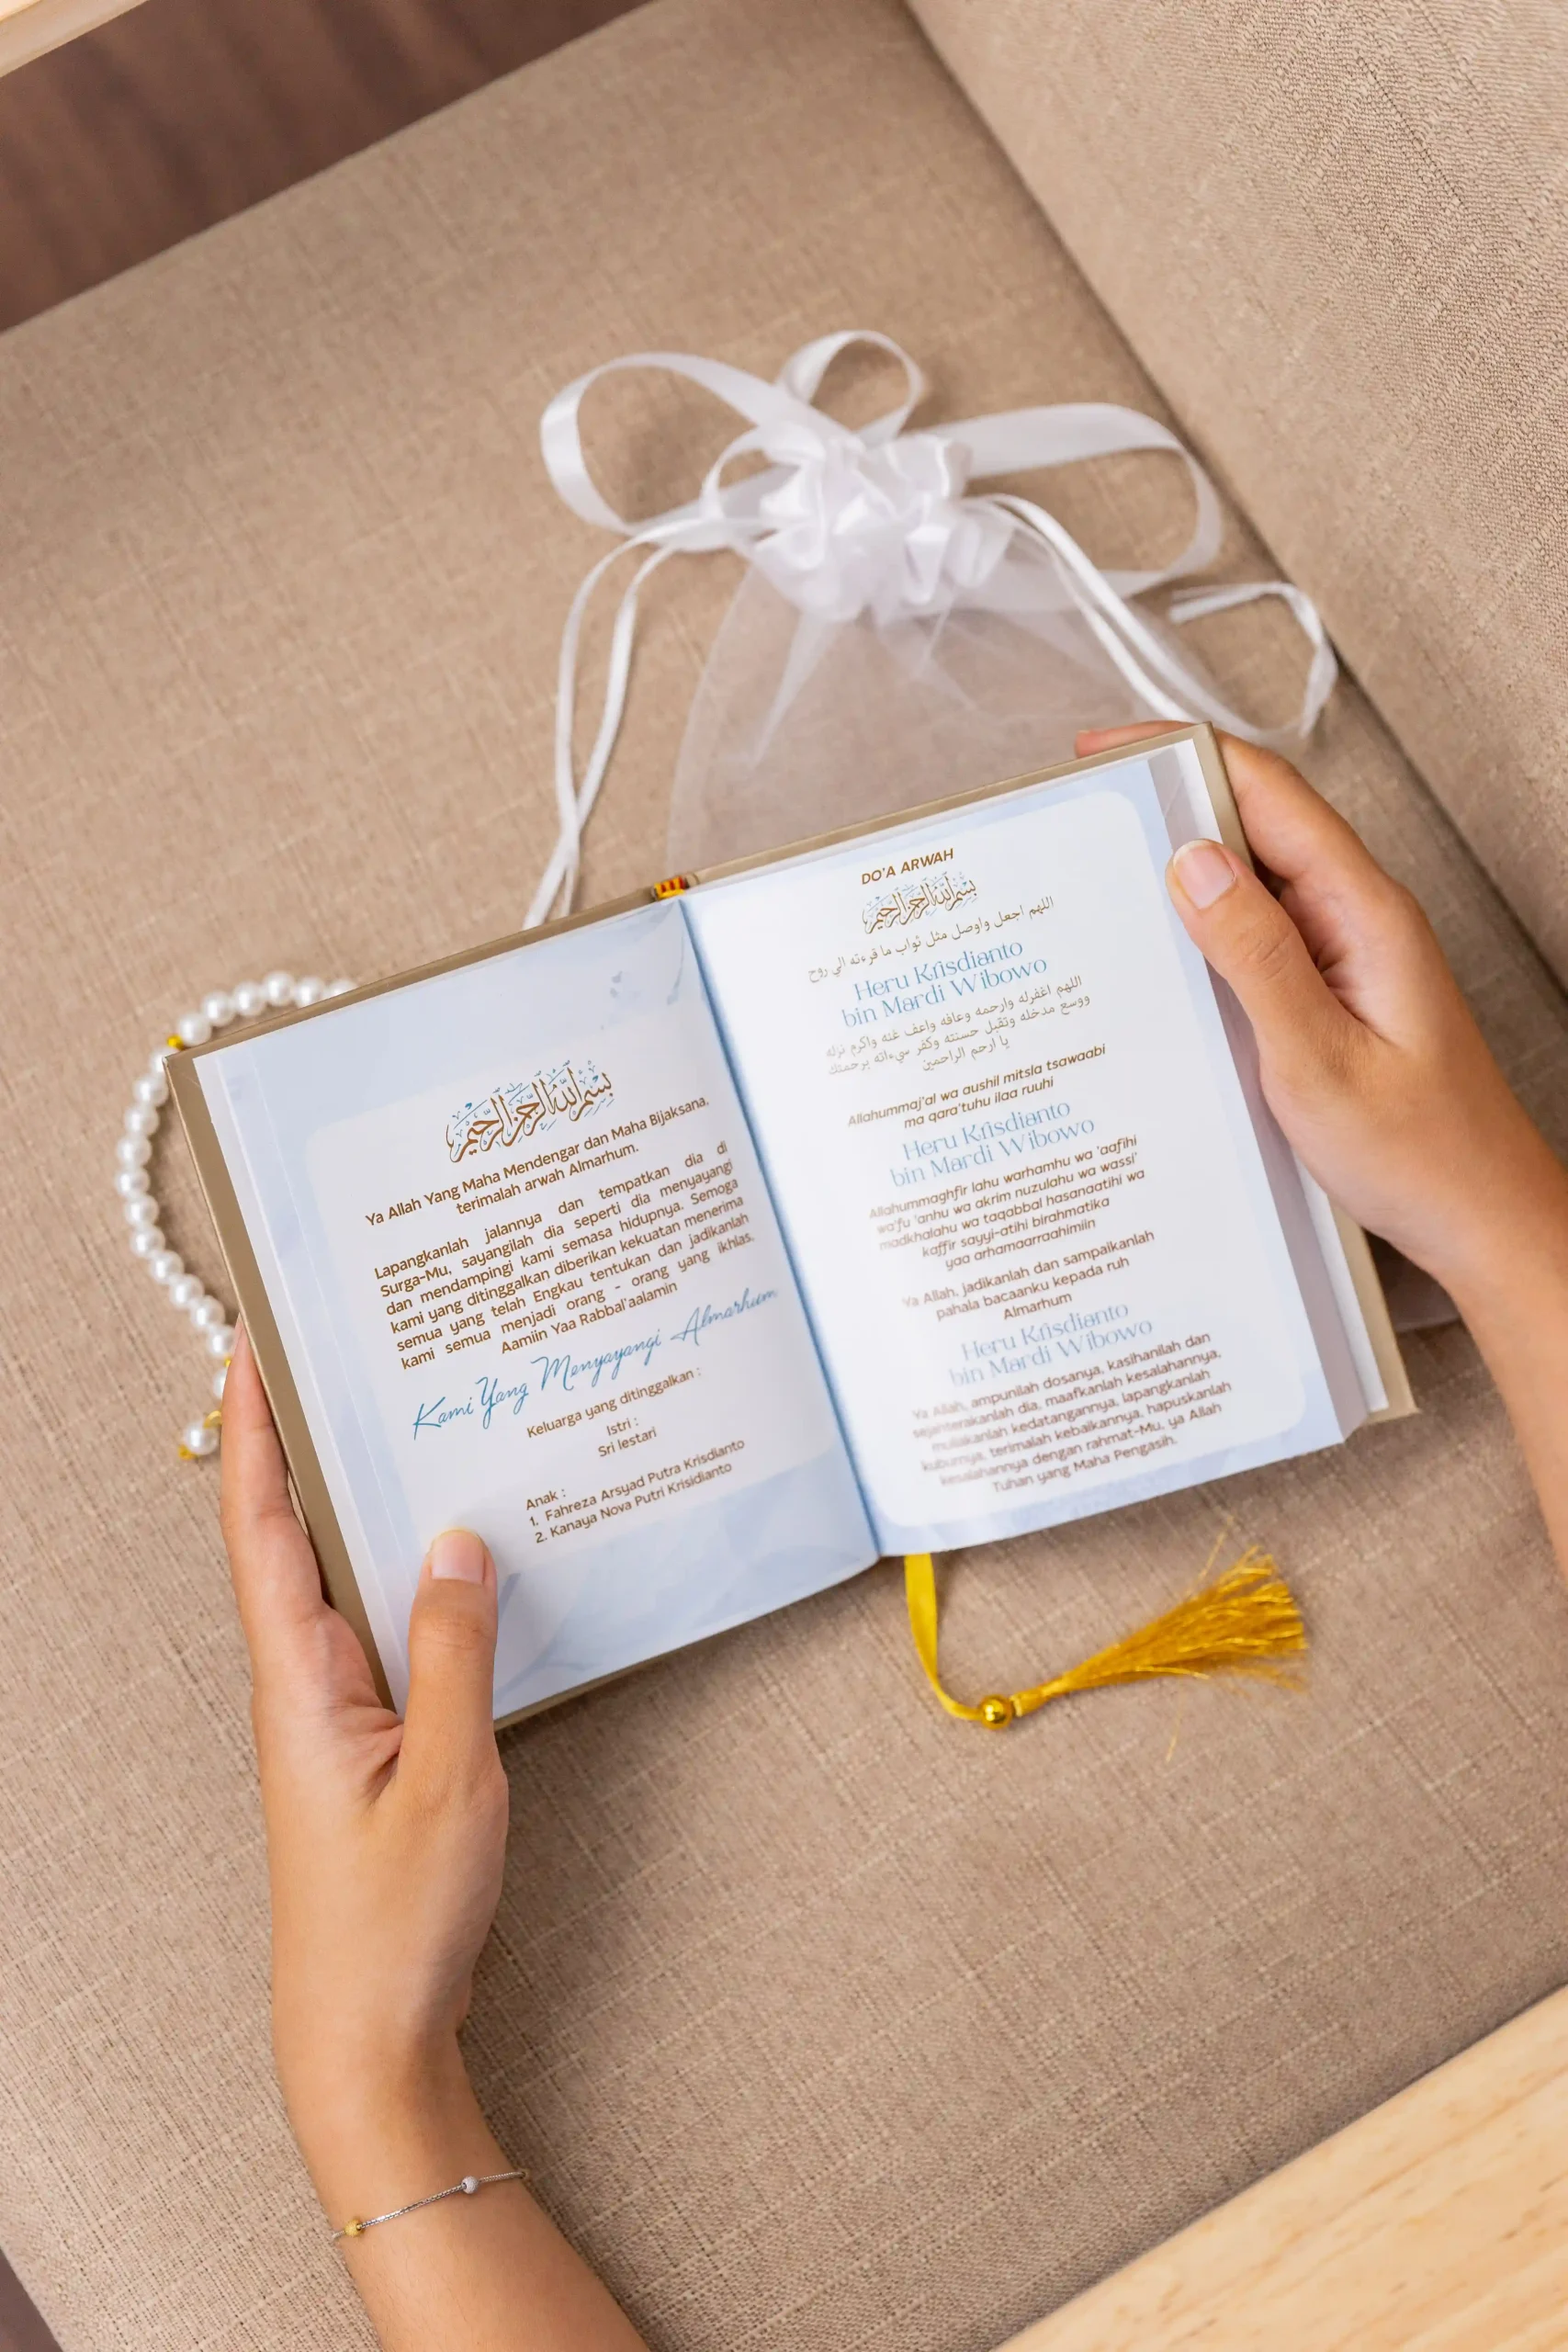 بسم الله الرحمن الرحيم
Ya Allah Yang Maha Mendengar dan Maha Bijaksana,
terimalah arwah Almarhum.
Lapangkanlah jalannya dan tempatkan dia di
Surga-Mu, sayangilah dia seperti dia menyayangi
dan mendampingi kami semasa hidupnya. Semoga
kami yang ditinggalkan diberikan kekuatan menerima
semua yang telah Engkau tentukan dan jadikanlah
kami semua menjadi orang - orang yang ikhlas.
Aamiin Yaa Rabbal'aalamin
Kami Yang Menyayangi Almarhum
Keluarga yang ditinggalkan :
Istri :
Sri lestari
Anak :
1. Fahreza Arsyad Putra Krisdianto
2. Kanaya Nova Putri Krisidianto
DO'A ARWAH
بسم الله الرحمن الرحيم
اللهم اجعل واوصل مثل ثواب ما قرءته الي روح
Heru Krisdianto
bin Mardi Wibowo
اللهم اغفرله وارحمه وعافه واعف عنه واكرم نزله
ووسع مدخله وتقبل حسنته وكفر سيءاته برحمتك
يا ارحم الراحمين
Allahummaj'al wa aushil mitsla tsawaabi
ma qara'tuhu ilaa ruuhi
Heru Krisdianto
bin Mardi Wibowo
Allahummaghfir lahu warhamhu wa 'aafihi
wa'fu 'anhu wa akrim nuzulahu wa wassi'
madkhalahu wa taqabbal hasanaatihi wa
kaffir sayyi-atihi birahmatika
yaa arhamaarraahimiin
Ya Allah, jadikanlah dan sampaikanlah
pahala bacaanku kepada ruh
Almarhum
Heru Krisdianto
bin Mardi Wibowo
Ya Allah, ampunilah dosanya, kasihanilah dan
sejahterakanlah dia, maafkanlah kesalahannya,
muliakanlah kedatangannya, lapangkanlah
kuburnya, terimalah kebaikannya, hapuskanlah
kesalahannya dengan rahmat-Mu, ya Allah
Tuhan yang Maha Pengasih.